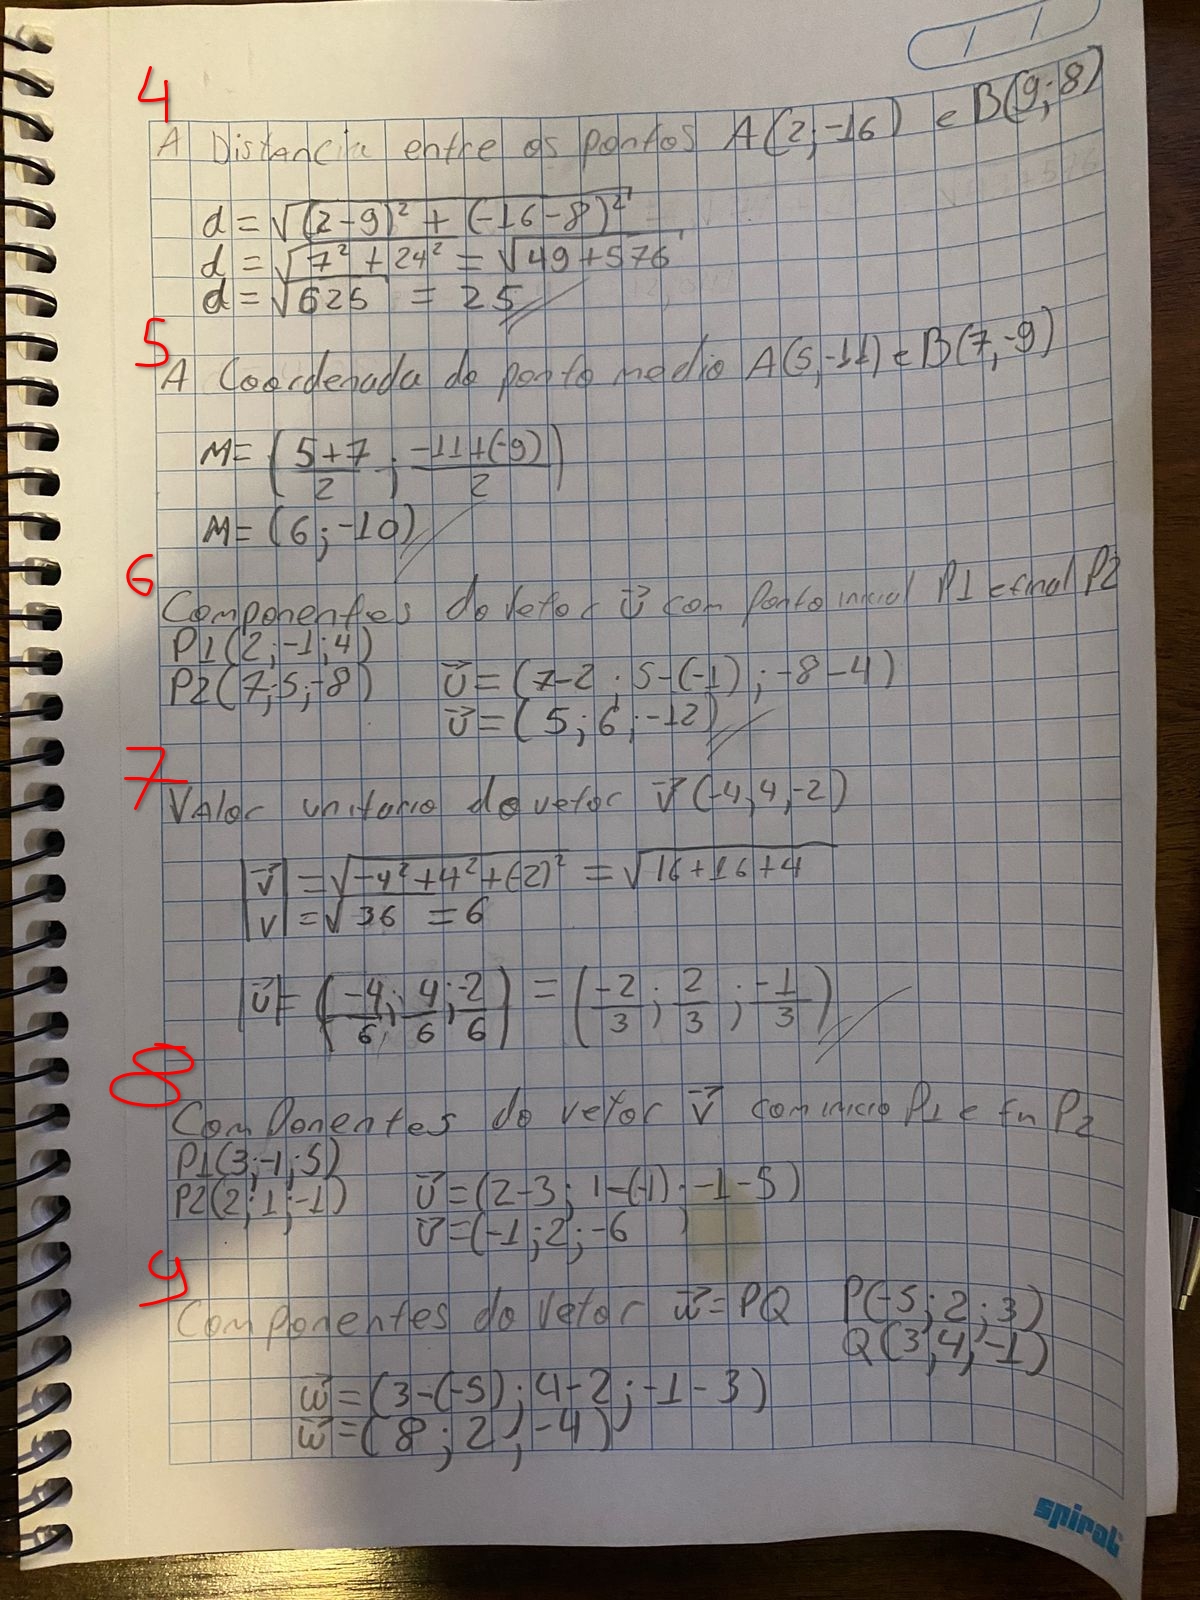 4
A Distancia entre os pontos A(2;-16) e B(9;8)
d = √(2-9)² + (-16-8)²
d = √7² + 24² = √49+576
d = √625 = 25
5
A Coordenada do ponto medio A(5,-11) e B(7,-9)
M= (5+7/2 ; -11+(-9)/2)
M= (6;-10)
6
Componentes do vetor U⃗ com ponto inicial P1 e final P2
P1(2;-1;4)
P2(7;5;-8) U⃗ = (7-2 ; 5-(-1) ; -8-4)
U⃗ = (5;6;-12)
7
VAlor unitario do vetor V⃗ (-4,4,-2)
|V⃗| = √-4²+4²+(-2)² = √16+16+4
|V| = √36 = 6
|U⃗| = (-4/6 ; 4/6 ; -2/6) = (-2/3 ; 2/3 ; -1/3)
8
Componentes do vetor V⃗ com inicio P1 e fn P2
P1(3;-1;5)
P2(2;1;-1) U⃗ = (2-3; 1-(-1); -1-5)
U⃗ = (-1;2;-6 )
9
Componentes do vetor w⃗ = PQ P(-5;2;3)
Q(3,4,-1)
w⃗ = (3-(-5);4-2;-1-3)
w⃗ = (8;2;-4)
spiral